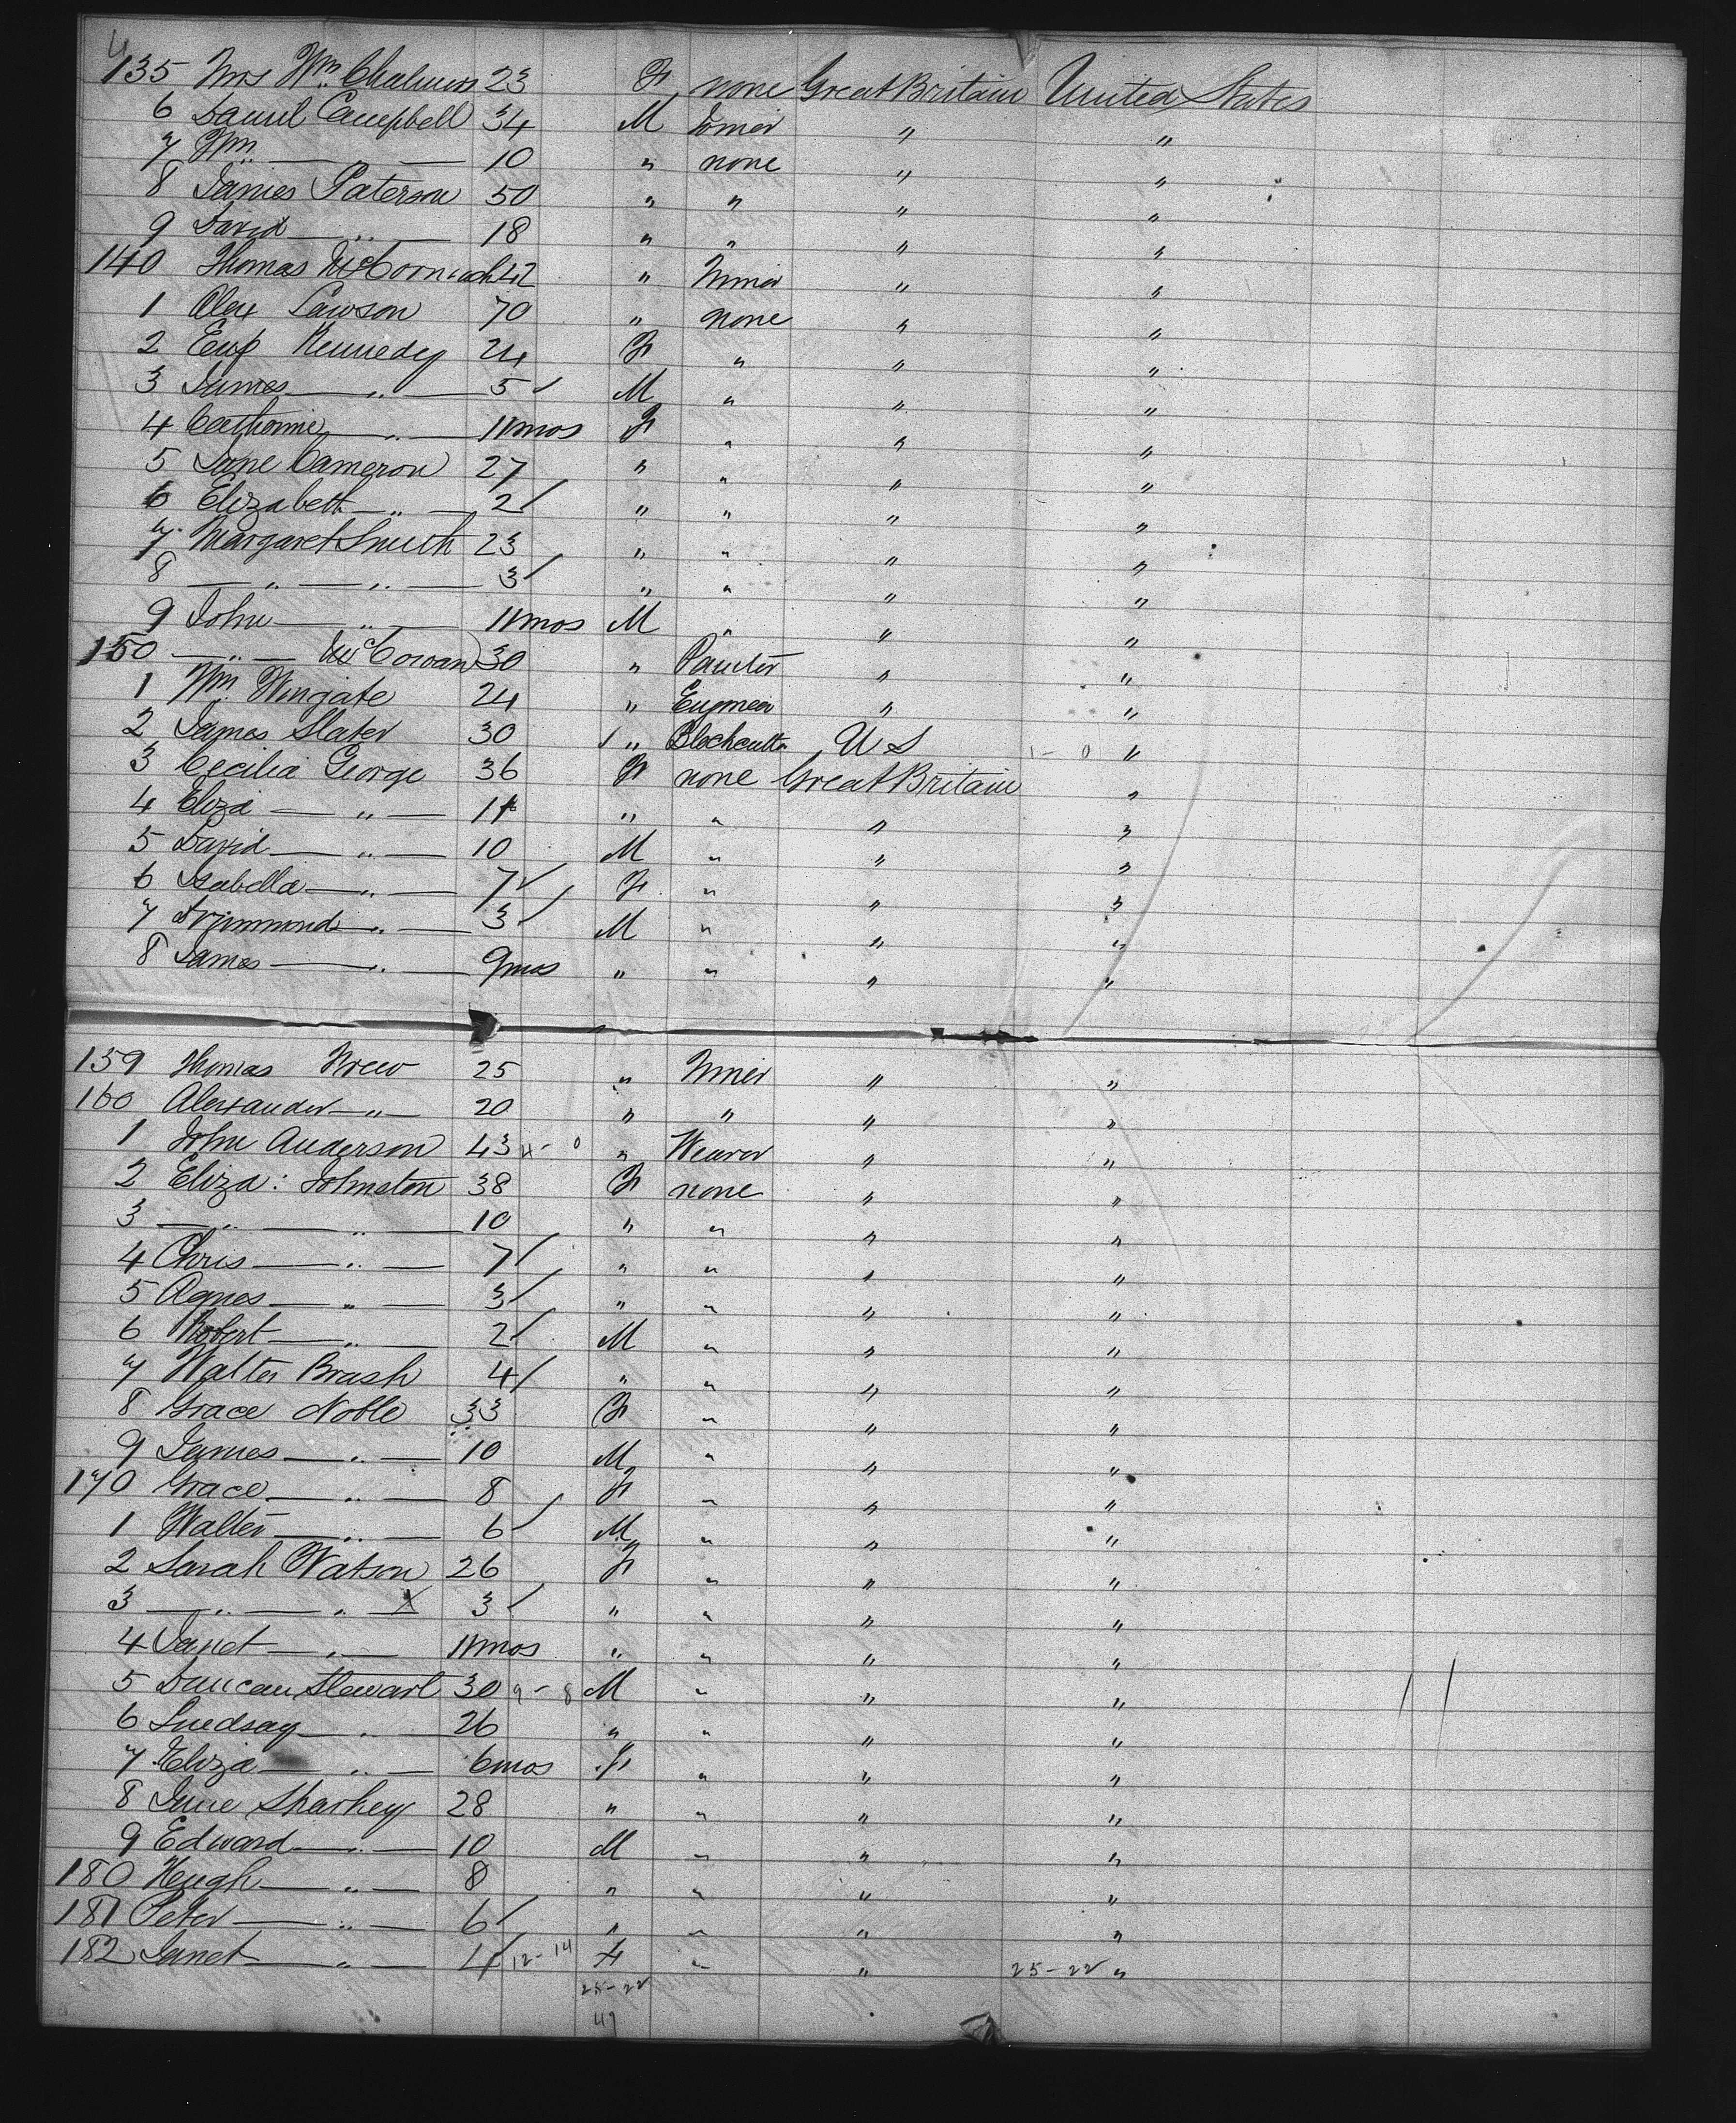 4
135 Mrs Wm Chalmers 23 F none Great Britain United States
6 Daniel Campbell 34 M " "
7 Wm — — 10 " none " "
8 James Paterson 50 " " " "
9 David — " — 18 " " " "
140 Thomas McCormack 42 " Miner " "
1 Alex Lawson 70 " none " "
2 Eup Kennedy 24 F " " "
3 James — " — 5 ✓ M " " "
4 Catherine — " — 11mos F " " "
5 Jane Cameron 27 " " " "
6 Elizabeth — " — 2 ✓ " " " "
7 Margaret Smith 23 " " " "
8 — " — " — 3 ✓ " " " "
9 John — " — 11mos M " " "
150 — " — McCowan 30 " Painter " "
1 Wm Wingate 24 " Engineer " "
2 James Slater 30 / " Blockcutter U S 1 - 0 "
3 Cecilia George 36 F none Great Britain "
4 Eliza — " — 11 " " " "
5 David — " — 10 M " " "
6 Isabella — " — 7 ✓ F " " "
7 Drummond " — 3 ✓ M " " "
8 James — " — 9mos " " " "
159 Thomas 25 " Miner " "
160 Alexander — " — 20 " " " "
1 John Anderson 43 4 - 0 " Weaver " "
2 Eliza: Johnston 38 F none " "
3 — " — " — 10 " " " "
4 Chris — " — 7 ✓ " " " "
5 Agnes — " — 3 ✓ " " " "
6 Robert — " — 2 ✓ M " " "
7 Walter Brash 4 ✓ " " " "
8 Grace Noble 33 F " " "
9 James — " — 10 M " " "
170 Grace — " — 8 F " " "
1 Walter — " — 6 ✓ M " " "
2 Sarah Watson 26 F " " "
3 — " — " — X 3 ✓ " " " "
4 Janet — " — 11mos " " " "
5 Duncan Stewart 30 9 - 8 M " " "
6 Lindsay — " — 26 " " " "
7 Eliza — " — 6mos F " " "
8 Jane Sharkey 28 " " " "
9 Edward — " — 10 M " " "
180 Hugh — " — 8 " " " "
181 Peter — " — 6 ✓ " " " "
182 Janet — " — 4 ✓ 12 - 14 F " " 25 - 22 "
25 - 22
47